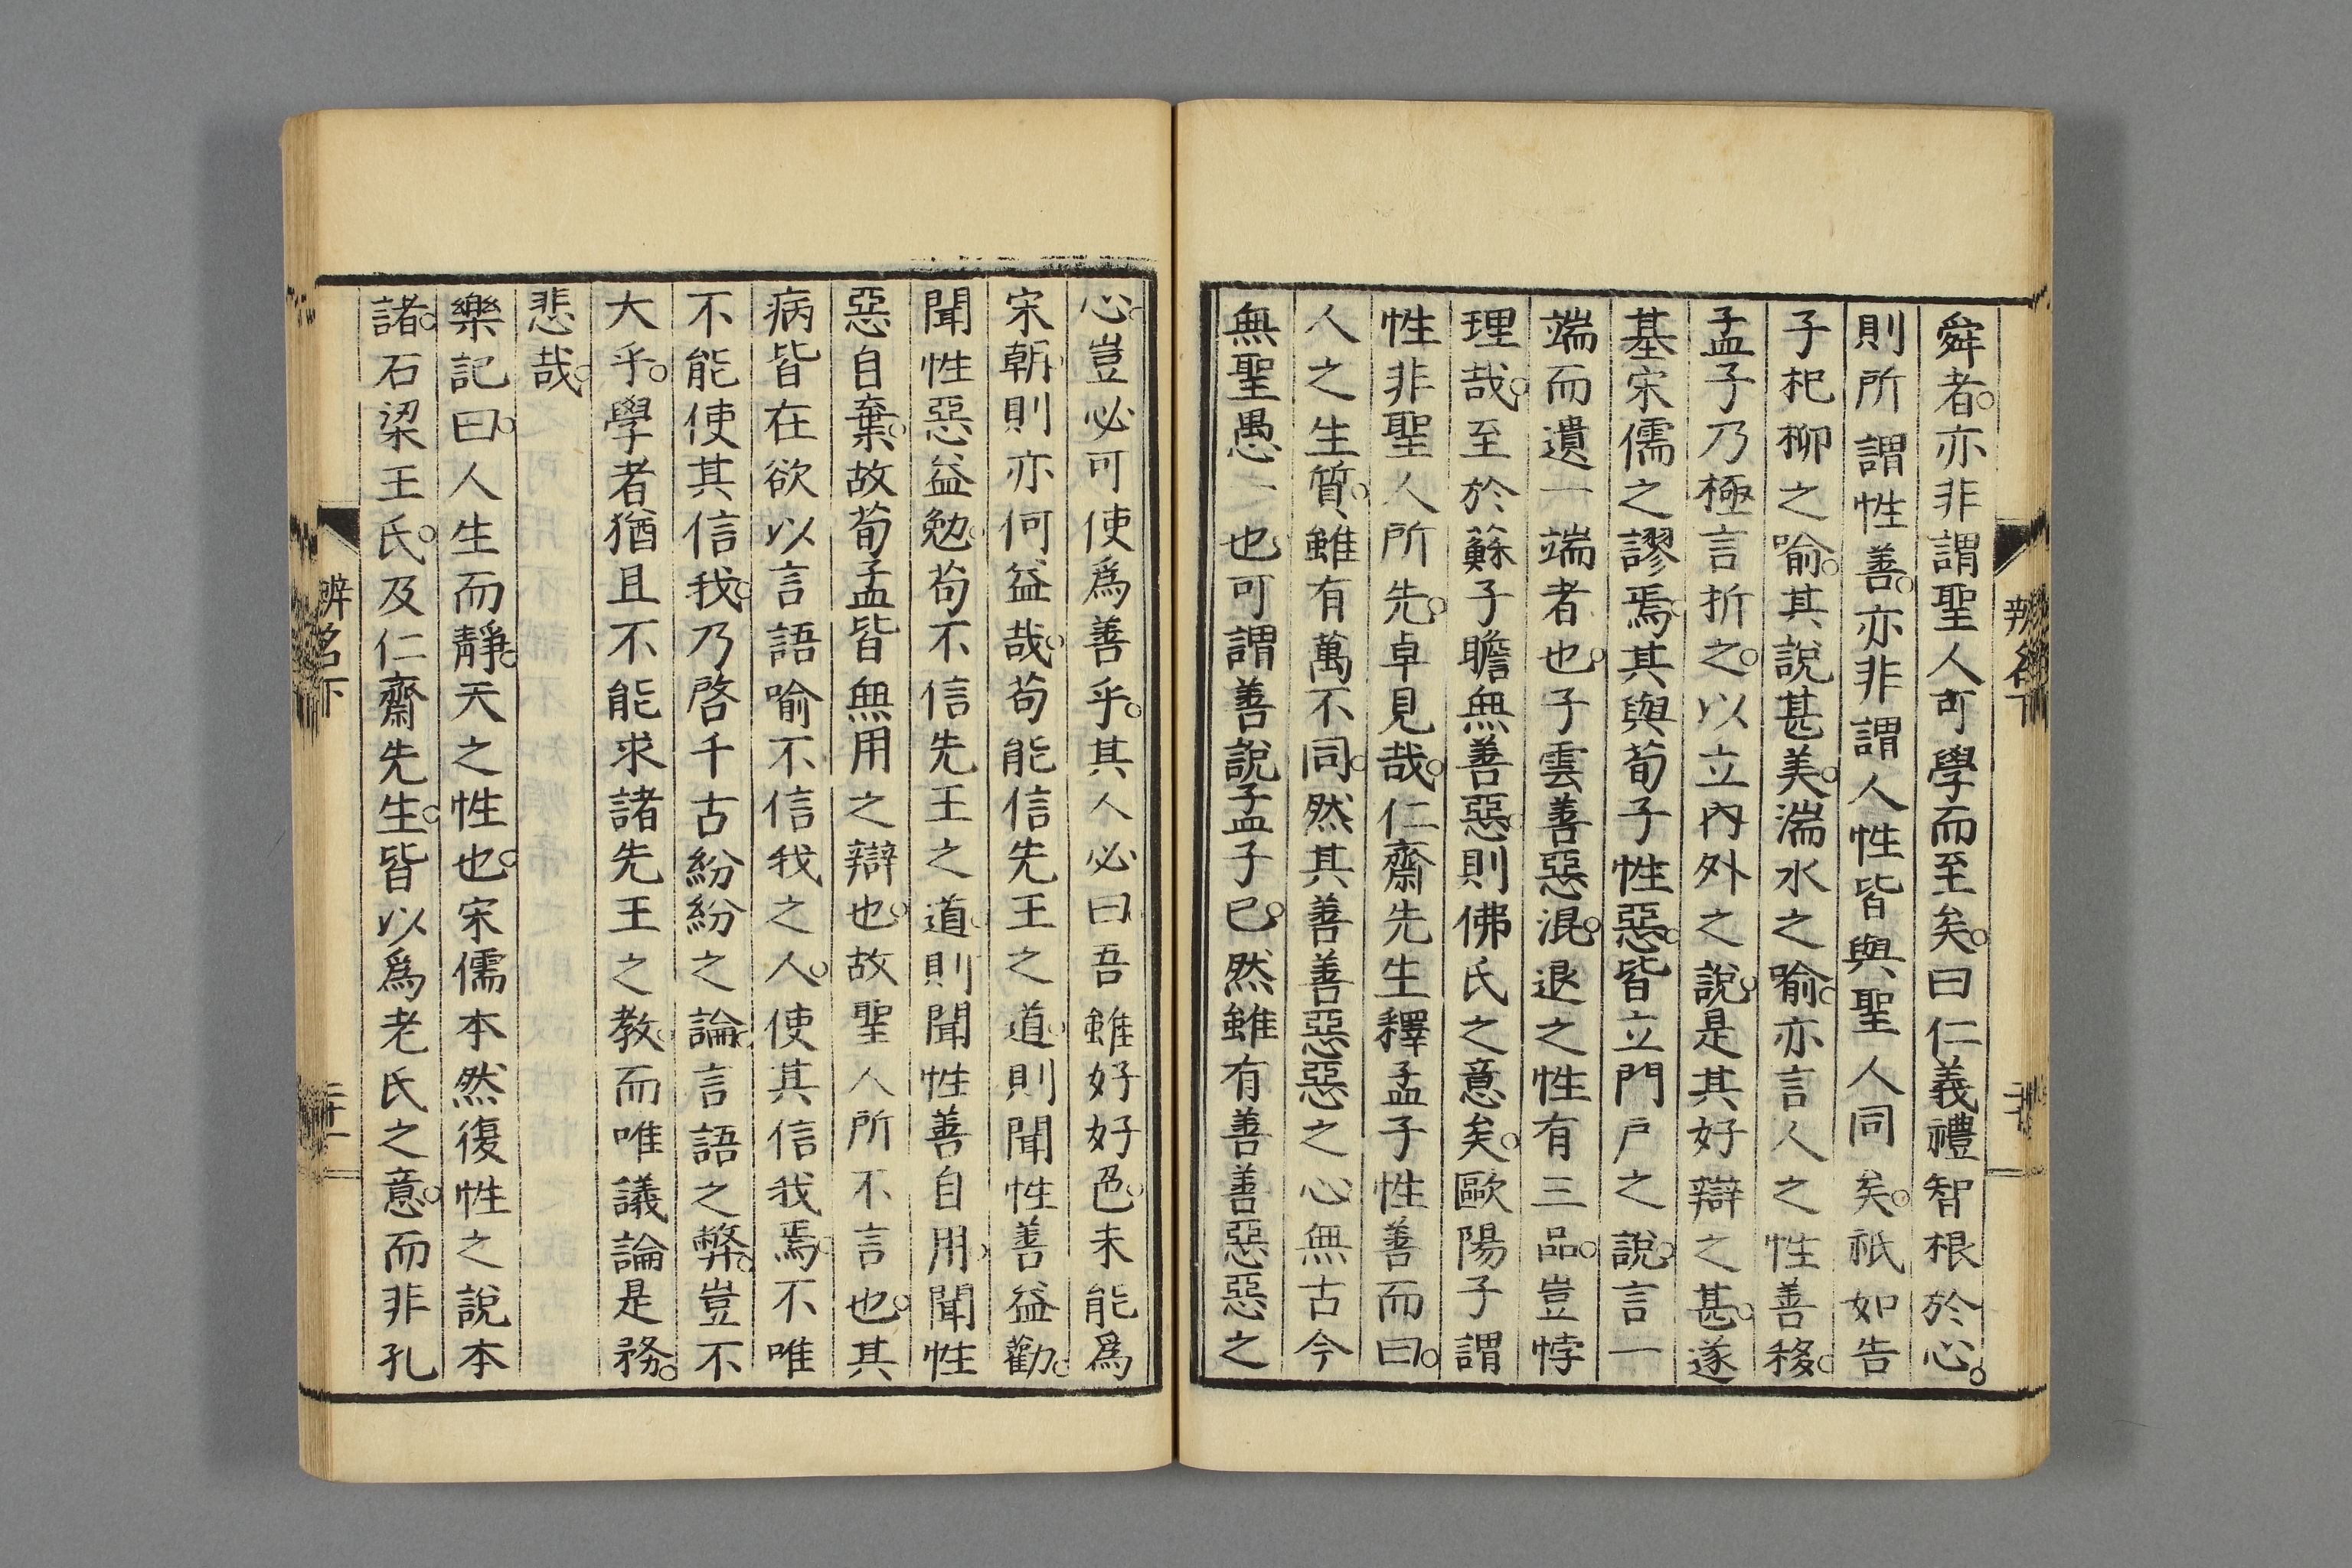 舜者。亦非謂聖人可學而至矣。曰仁義禮智根於心。
則所謂性善。亦非謂人性皆與聖人同矣。祇如告
子杞柳之喻。其說甚美。湍水之喻。亦言人之性善移。
孟子乃極言折之。以立內外之說。是其好辯之甚。遂
基宋儒之謬焉。其與荀子性惡。皆立門戶之說。言一
端而遺一端者也。子雲善惡混。退之性有三品。豈悖
理哉。至於蘇子瞻無善惡。則佛氏之意矣。歐陽子謂
性非聖人所先。卓見哉。仁齋先生釋孟子性善而曰。
人之生質。雖有萬不同。然其善善惡惡之心無古今
無聖愚一也可謂善說孟子已。然雖有善善惡惡之
心。豈必可使爲善乎。其人必曰。吾雖好好色。未能爲
宋朝。則亦何益哉。苟能信先王之道。則聞性善益勸。
聞性惡益勉。苟不信先王之道。則聞性善自用。聞性
惡自棄。故荀孟皆無用之辯也。故聖人所不言也。其
病皆在欲以言語喻不信我之人。使其信我焉。不唯
不能使其信我。乃啓千古紛紛之論。言語之弊。豈不
大乎。學者猶且不能求諸先王之教。而唯議論是務。
悲哉。
樂記曰。人生而靜。天之性也。宋儒本然復性之說本
諸。石梁王氏。及仁齋先生。皆以爲老氏之意。而非孔
辨名下